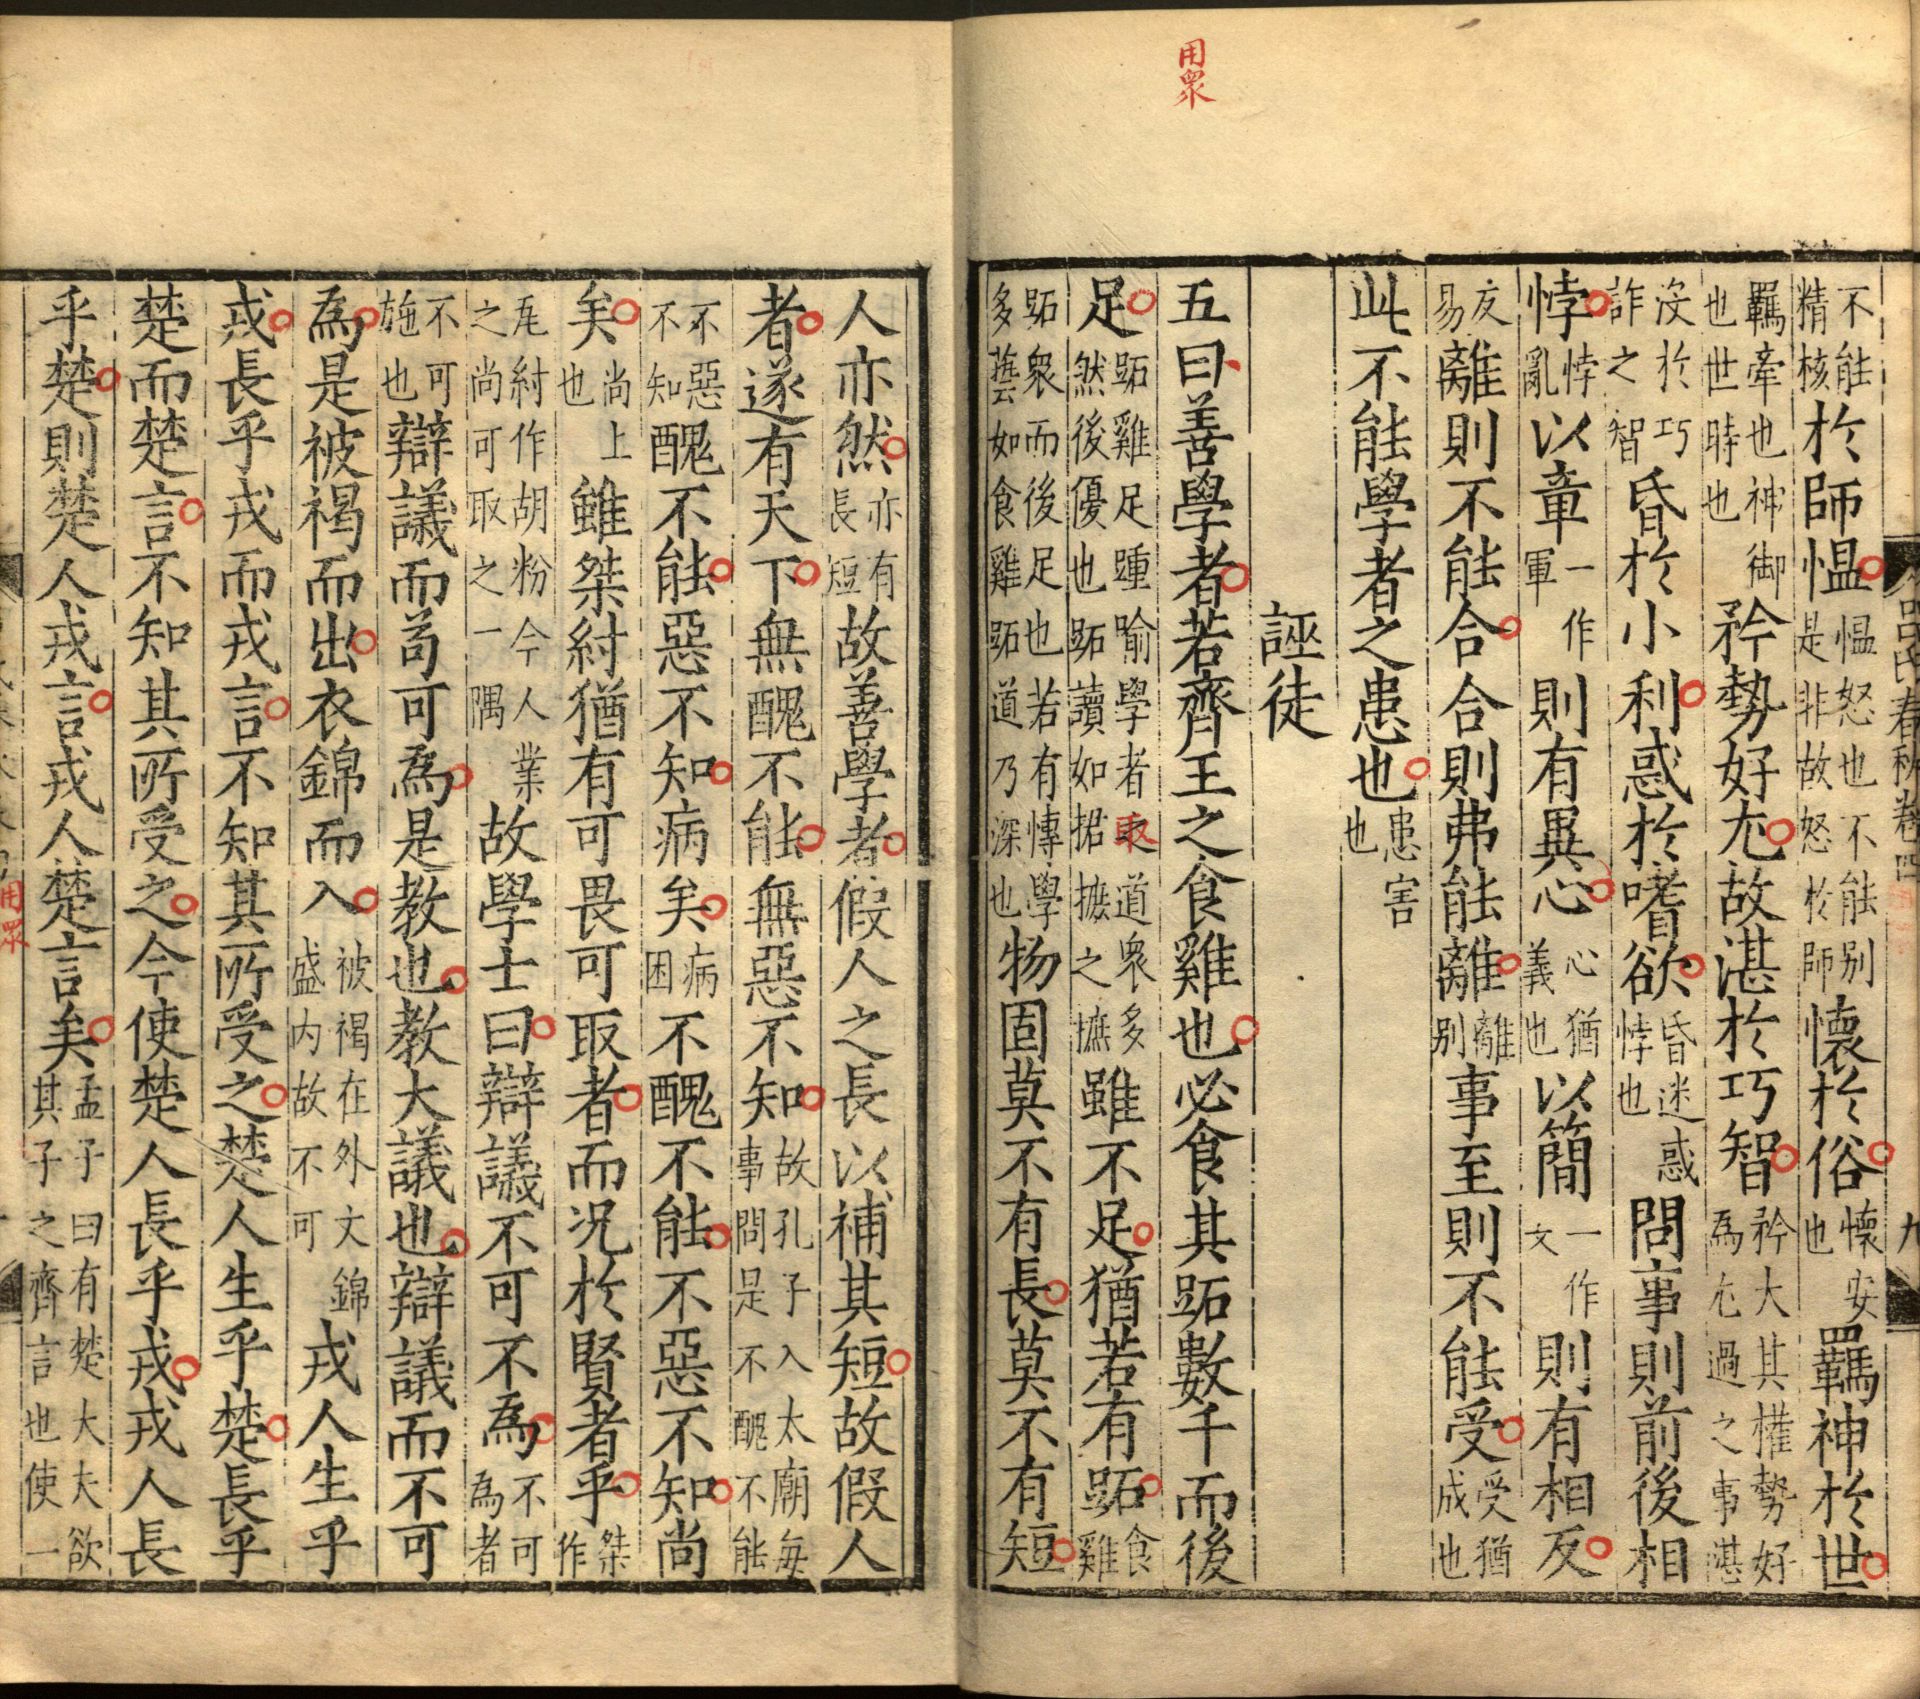 用眾
呂氏春秋卷四 九
不能精核於師慍慍怒也不能別是非故怒於師懷於俗懷安也羈神於世
羈牽也神御也世時也矜勢好尤故湛於巧智矜大其權勢好為尤過之事湛
沒於巧詐之智昏於小利惑於嗜欲昏迷惑悖也問事則前後相
悖悖亂以章一作軍則有異心心猶義也以簡一作文則有相反
反易離則不能合合則弗能離離別事至則不能受受猶成也
此不能學者之患也患害也
誣徒
五曰善學者若齊王之食雞也必食其跖數千而後
足跖雞足踵喻學者取道眾多然後優也跖讀如捃摭之摭雖不足猶若有跖食雞
跖眾而後足也若有博學多藝如食雞跖道乃深也物固莫不有長莫不有短
人亦然亦有長短故善學者假人之長以補其短故假人
者遂有天下無醜不能無惡不知故孔子入太廟每事問是不醜不能
不惡不知醜不能惡不知病矣病困不醜不能不惡不知尚
矣尚上也雖桀紂猶有可畏可取者而況於賢者乎桀作
瓦紂作胡粉今人業之尚尚可取之一隅故學士曰辯議不可不為不可為者
不可施也辯議而苟可為是教也教大議也辯議而不可
為是被褐而出衣錦而入被褐在外文錦盛內故不可戎人生乎
戎長乎戎而戎言不知其所受之楚人生乎楚長乎
楚而楚言不知其所受之今使楚人長乎戎戎人長
乎楚則楚人戎言戎人楚言矣孟子曰有楚大夫欲其子之齊言也使一
用眾